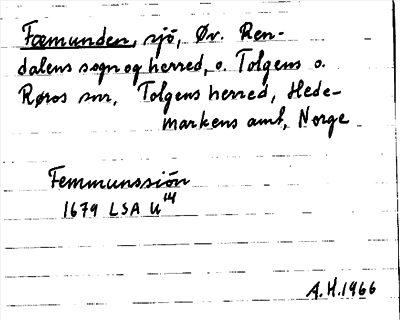 Fæmunden, sjö, Øv. Ren-
dalens sogn og herred, o. Tolgens o.
Røros snr, Tolgens herred, Hede-
markens amt, Norge
Femmunssiön
1679 LSA U14
A.H. 1966